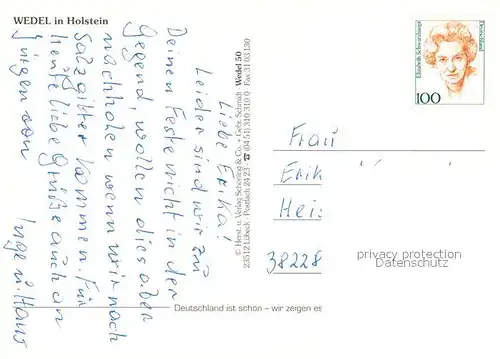 WEDEL in Holstein
Liebe Erika!
Leider sind wir zu
Deinem Feste nicht in der
Gegend, wollen dies aber
nachholen wenn wir nach
Salzgitter kommen. Für
heute liebe Grüße auch an
Jürgen von
Inge u. Hans
© Herst. u. Verlag Schöning & Co. + Gebr. Schmidt Wedel 50
23512 Lübeck · Postfach 24 23 ☎ (04 51) 310 310 0 · Fax 31 03 130
Elisabeth Schwarzhaupt
Deutschland
100
Frau
Erik
Hei
38228
privacy protection
Datenschutz
Deutschland ist schön – wir zeigen es